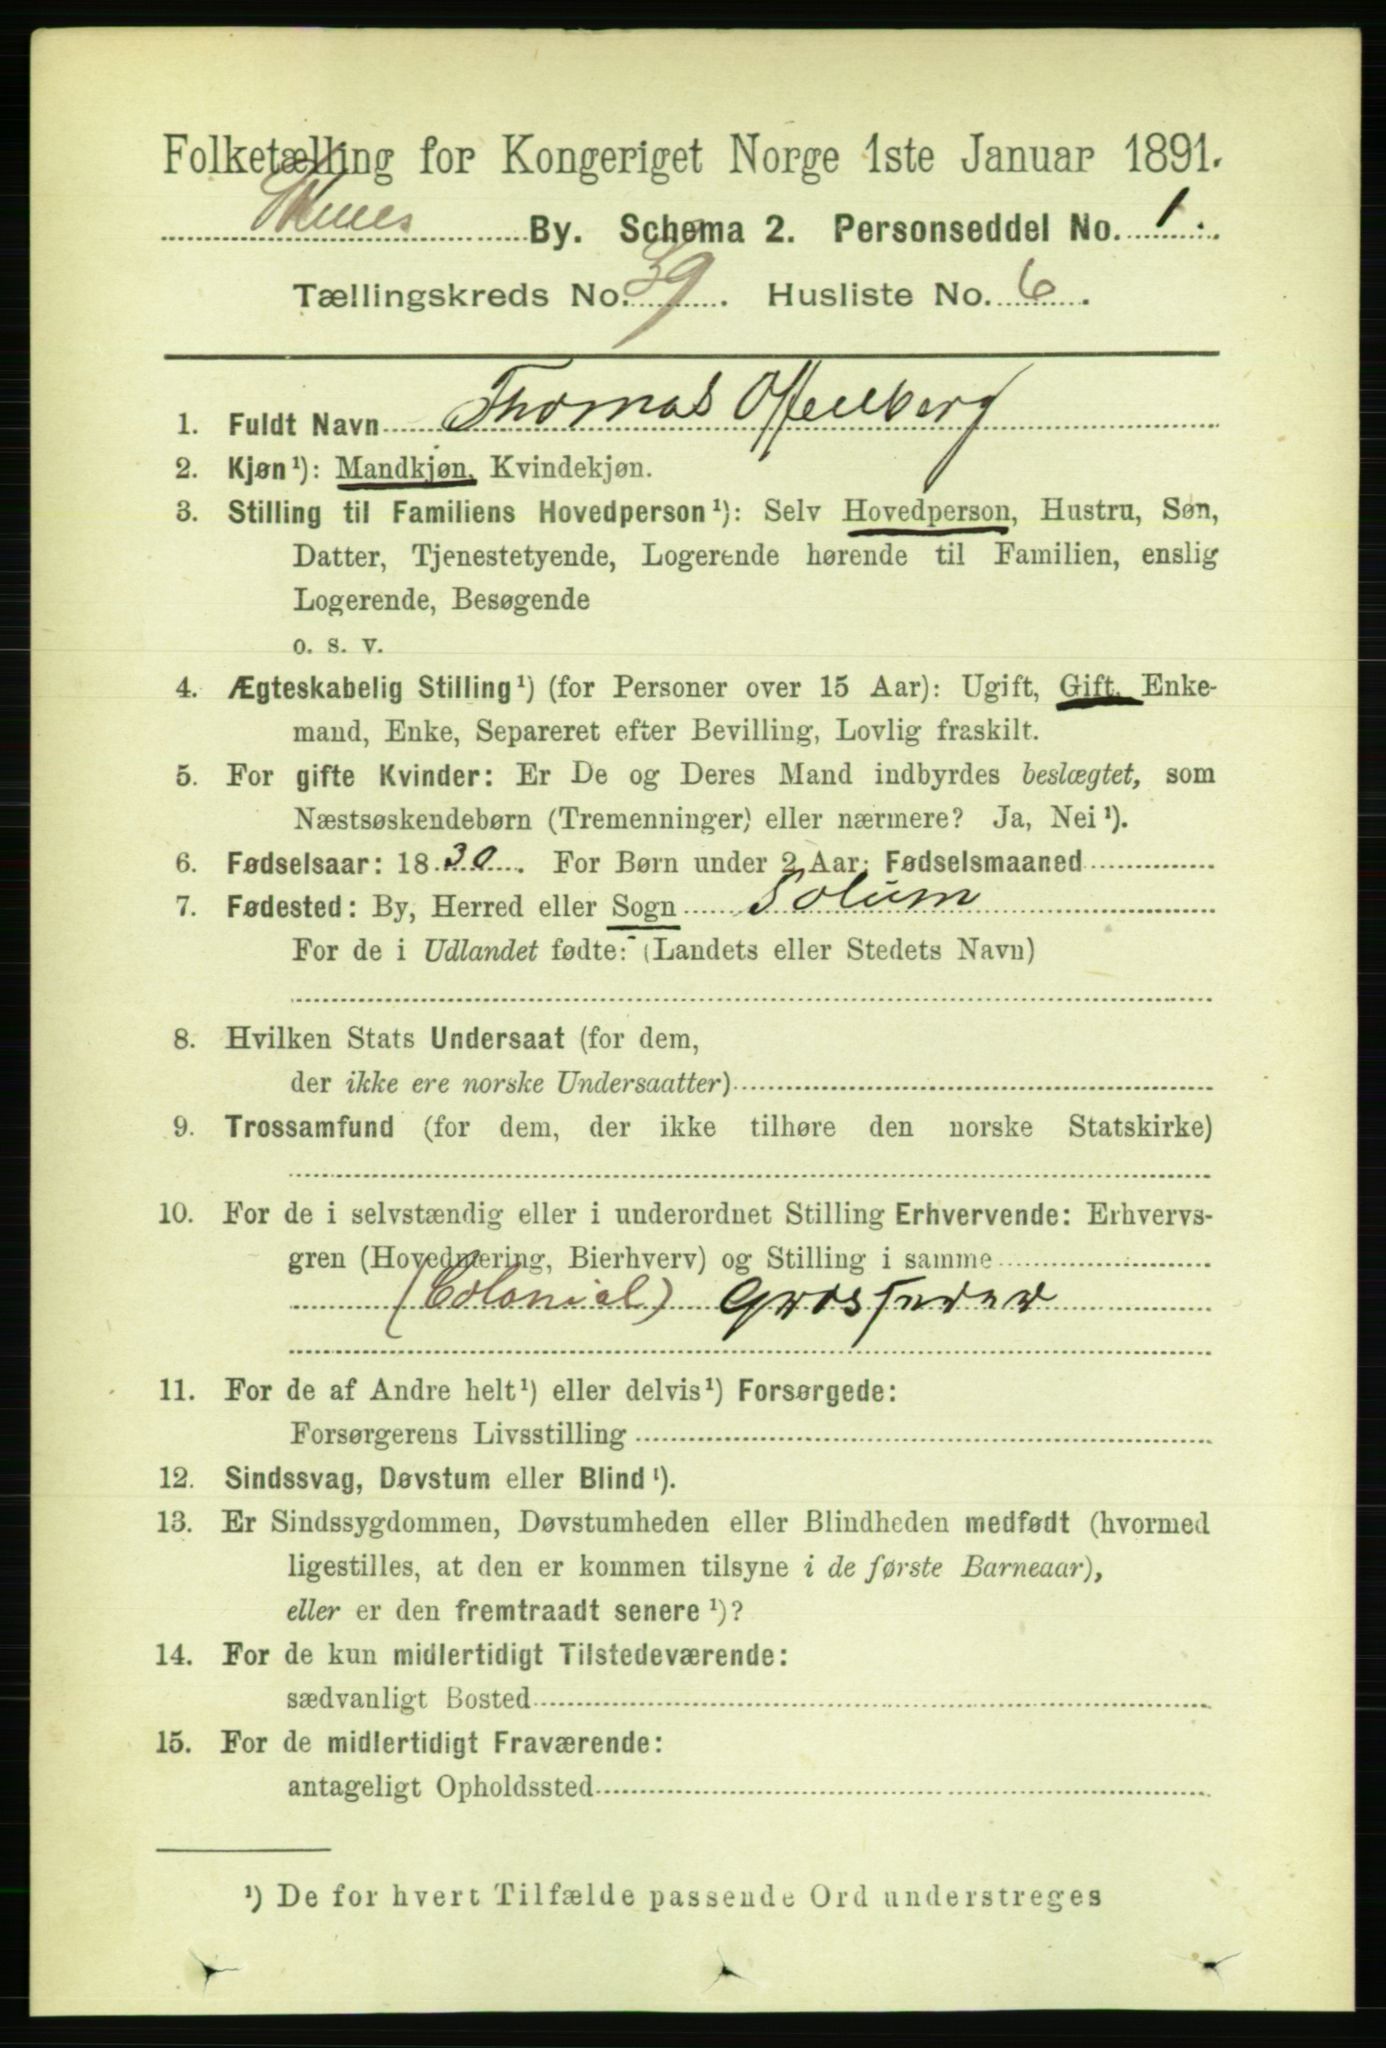 Folketælling for Kongeriget Norge 1ste Januar 1891.
Skiens By. Schema 2. Personseddel No. 1.
Tællingskreds No. 39. Husliste No. 6.
1. Fuldt Navn Thomas Offenberg
2. Kjøn¹): Mandkjøn, Kvindekjøn.
3. Stilling til Familiens Hovedperson¹): Selv Hovedperson, Hustru, Søn,
Datter, Tjenestetyende, Logerende hørende til Familien, enslig
Logerende, Besøgende
o. s. v.
4. Ægteskabelig Stilling¹) (for Personer over 15 Aar): Ugift, Gift, Enke-
mand, Enke, Separeret efter Bevilling, Lovlig fraskilt.
5. For gifte Kvinder: Er De og Deres Mand indbyrdes beslægtet, som
Næstsøskendebørn (Tremenninger) eller nærmere? Ja, Nei¹).
6. Fødselsaar: 1830. For Børn under 2 Aar: Fødselsmaaned
7. Fødested: By, Herred eller Sogn Solum
For de i Udlandet fødte: (Landets eller Stedets Navn)
8. Hvilken Stats Undersaat (for dem,
der ikke ere norske Undersaatter)
9. Trossamfund (for dem, der ikke tilhøre den norske Statskirke)
10. For de i selvstændig eller i underordnet Stilling Erhvervende: Erhvervs-
gren (Hovednæring, Bierhverv) og Stilling i samme
(Colonial) Grosserer
11. For de af Andre helt¹) eller delvis¹) Forsørgede:
Forsørgerens Livsstilling
12. Sindssvag, Døvstum eller Blind¹).
13. Er Sindssygdommen, Døvstumheden eller Blindheden medfødt (hvormed
ligestilles, at den er kommen tilsyne i de første Barneaar),
eller er den fremtraadt senere¹)?
14. For de kun midlertidigt Tilstedeværende:
sædvanligt Bosted
15. For de midlertidigt Fraværende:
antageligt Opholdssted
¹) De for hvert Tilfælde passende Ord understreges